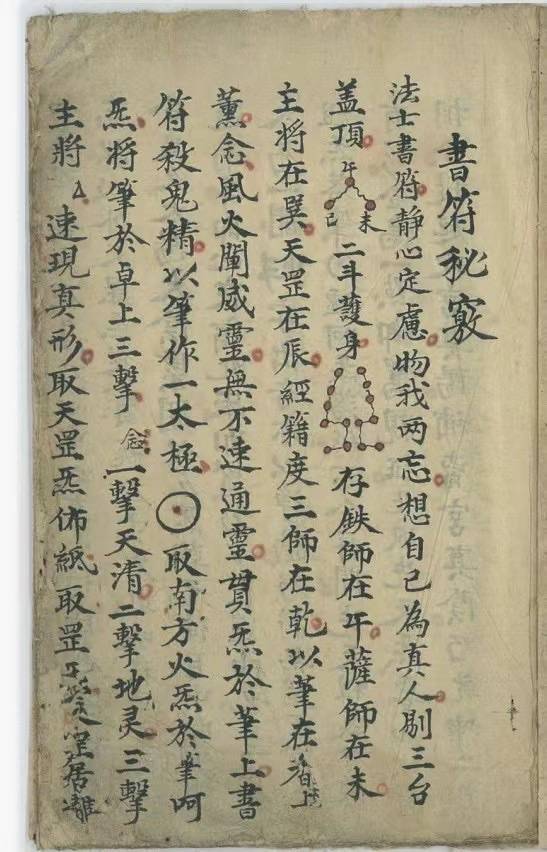 書符秘竅
法士書符静心定慮物我两忘想自己為真人剔三台
盖頂 午 未 已 二斗護身 存鉄師在午薩師在未
主将在巽天罡在辰經籍度三師在乾以筆在香上
薰念風火闡威靈無不速通靈貫炁於筆上書
符殺鬼精以筆作一太極 取南方火炁於筆呵
炁将筆於卓上三擊 念 一擊天清二擊地灵三擊
主将厶速現真形取天罡炁佈紙取罡 罡居離